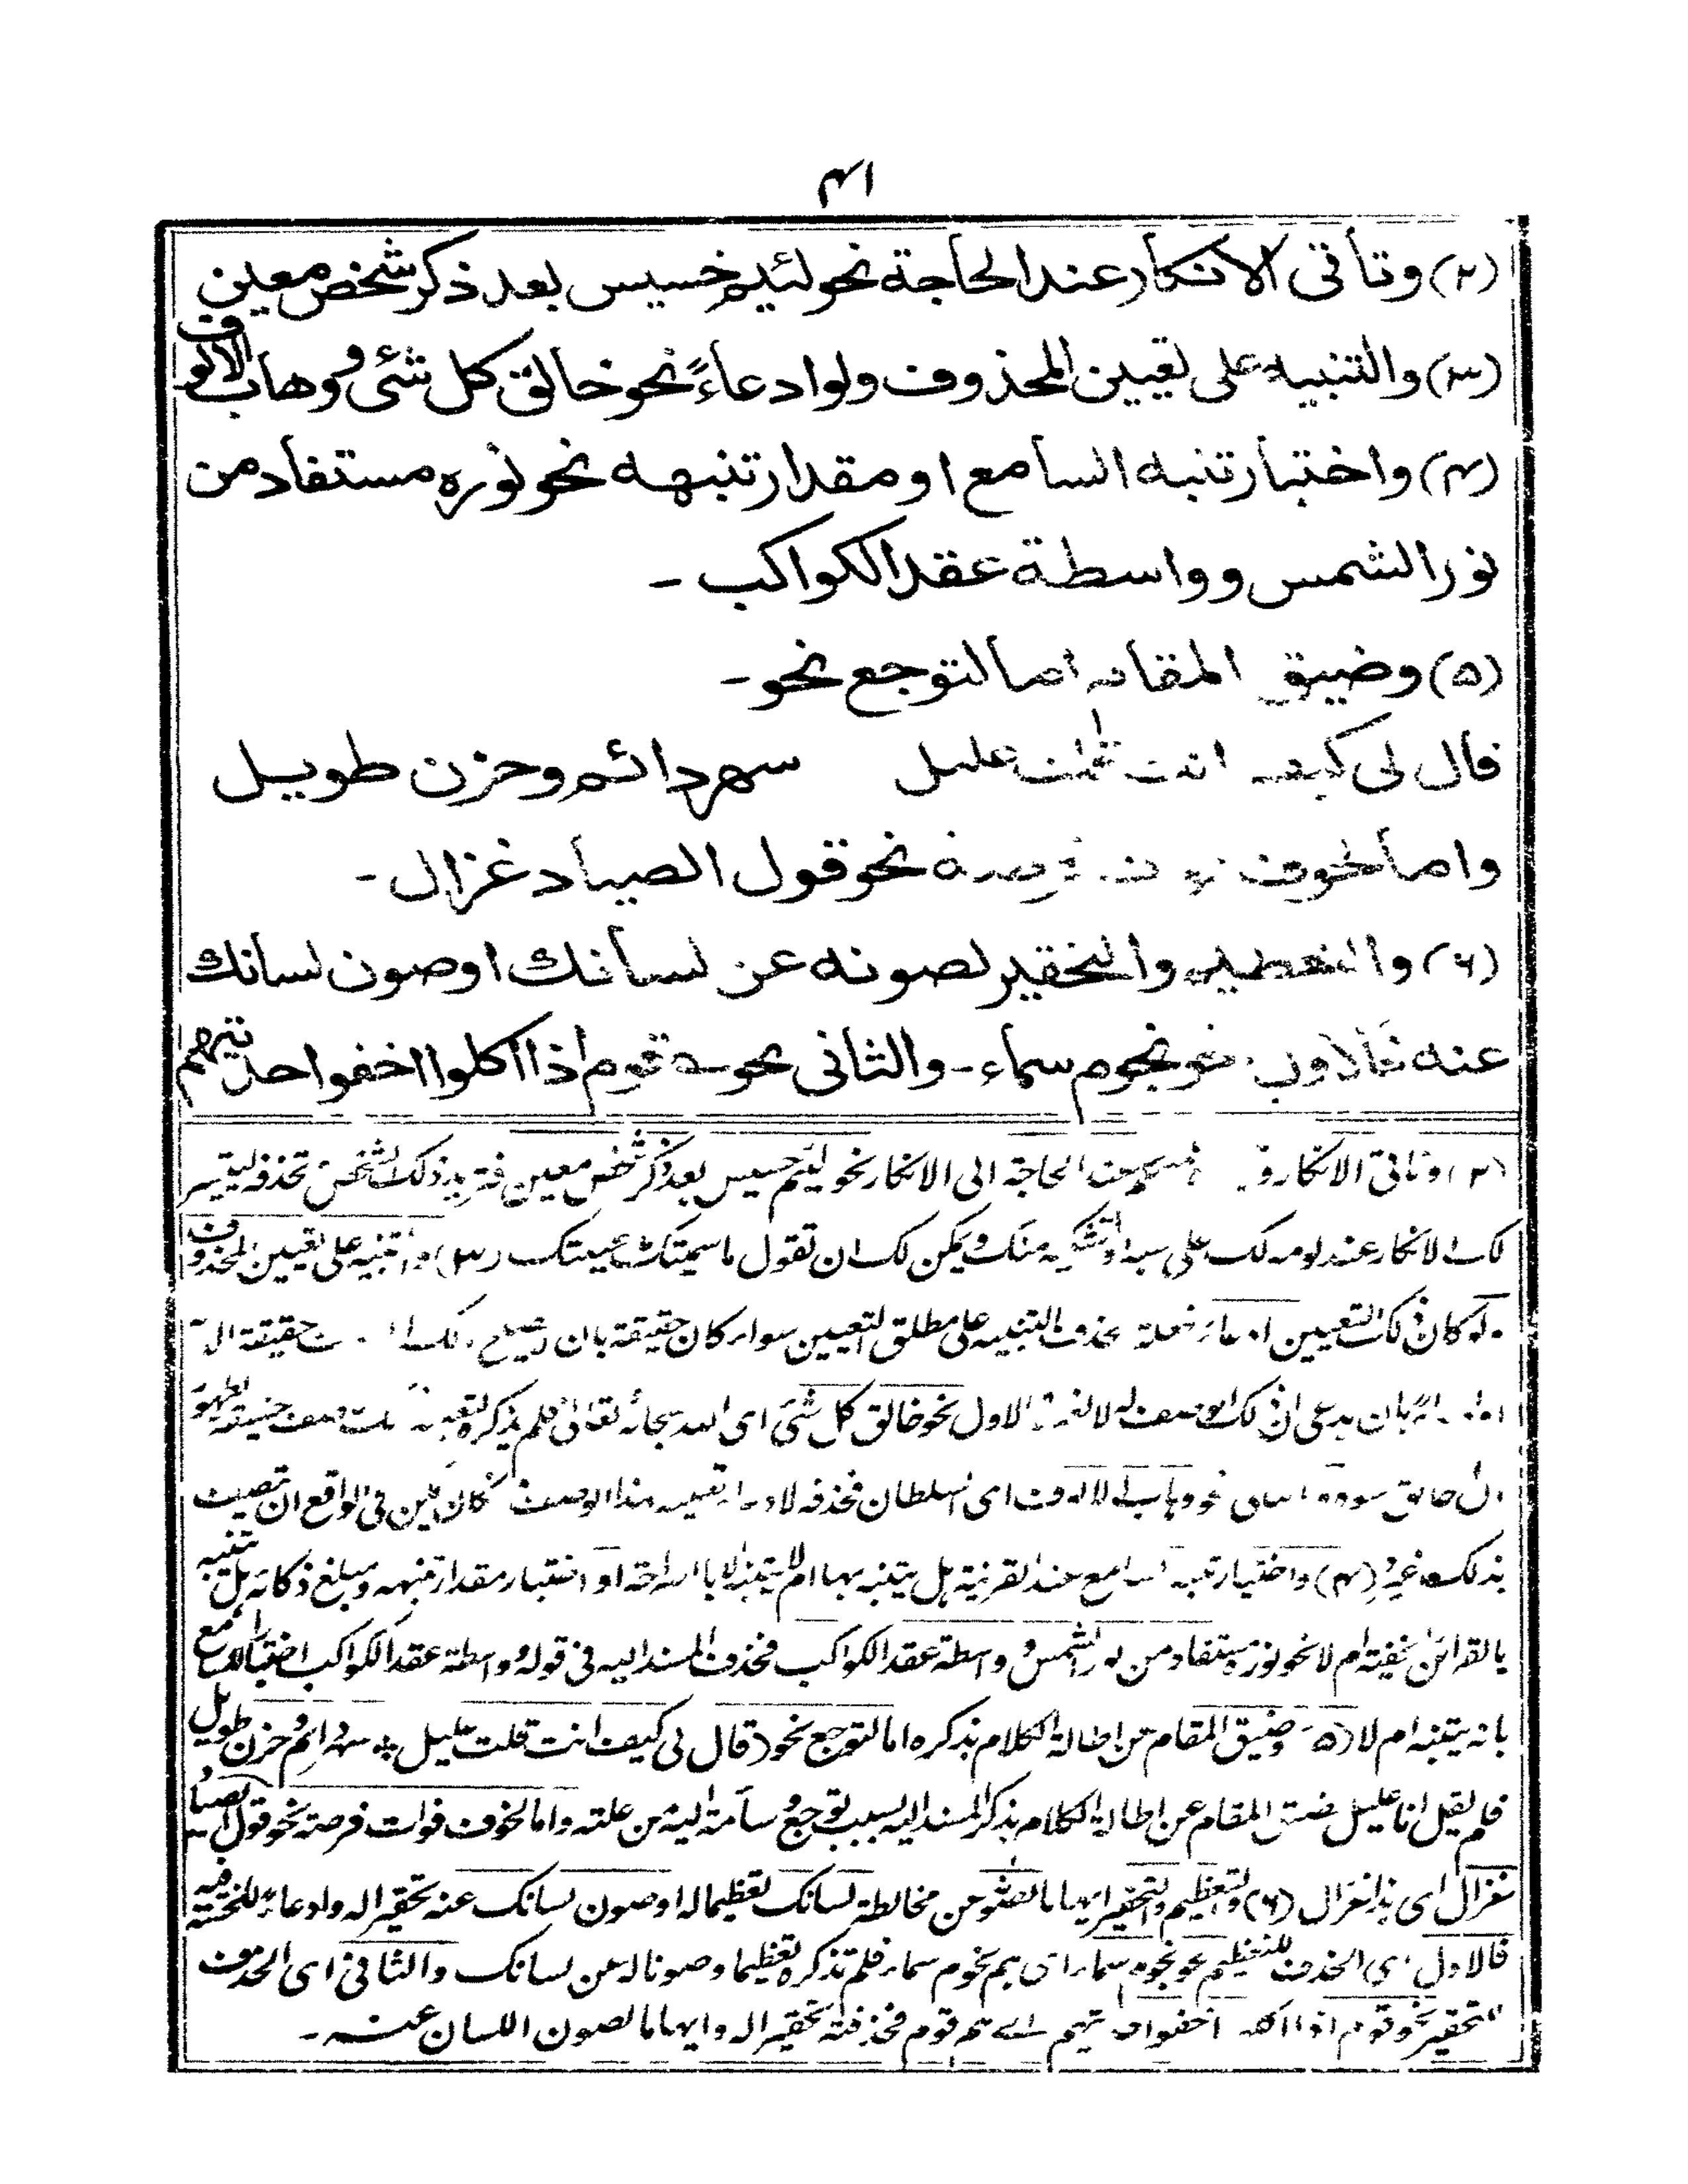 ۴۱
(۲) وتأتى الانكار عند الحاجة نحو لئيم خسيس بعد ذكر شخص معين
(۳) والتنبيه على تعيين المحذوف ولو ادعاءً نحو خالق كل شئ و وهاب الالوف
(۴) واختبار تنبه السامع او مقدار تنبهه نحو نوره مستفاد من
نور الشمس وواسطة عقد الكواكب -
(۵) وضيق المقام اما لتوجع نحو -
قال لى كيف انت قلت عليل سهر دائم وحزن طويل
واما لخوف فرصة نحو قول الصياد غزال -
(۶) والتعظيم والتحقير لصونه عن لسانك او صون لسانك
عنه فالاول نحو نجوم سماء - والثانى نحو قوم اذا اكلوا اخفوا حديثهم
(۲) وتأتى الانكار عند الحاجة الى الانكار نحو لئيم خسيس بعد ذكر شخص معين فتريد ذلك الشخص تحذفه ليتيسر
لك الانكار عند لومه لك على سبه او تشكيه منك ويمكن لك ان تقول ما سميتك عينتك (۳) والتنبيه على تعيين المحذوف
ولو كان ذلك التعيين ادعاء يحذف التنبيه على مطلق التعيين سواء كان حقيقة بان حقيقة
بان يدعى ان ذلك الوصف له لا لغيره الاول نحو خالق كل شئ اى الله سبحانه تعالى فلم يذكره
نحو وهاب الالوف اى السلطان فحذفه هذا الوصف فى الواقع ان تصيف
بذلك غيره (۴) واختبار تنبه السامع عند القرينة هل يتنبه بها ام لا يتنبه الا بالصراحة او اختبار مقدار تنبهه ومبلغ ذكائه هل يتنبه
بالقرائن خفية ام لا نحو نوره مستفاد من نور الشمس وواسطة عقد الكواكب فحذف المسند اليه فى قوله وواسطة عقد الكواكب اختبارا للسامع
بانه يتنبه ام لا (۵) وضيق المقام عن اطالة الكلام بذكره اما لتوجع نحو (قال لى كيف انت قلت عليل * سهر دائم وحزن طويل
فلم يقل انا عليل لضيق المقام عن اطالة الكلام بذكر المسند اليه بسبب توجع وسآمة اليه من علته واما لخوف فوات فرصة نحو قول الصياد
غزال اى هذا غزال (۶) والتعظيم والتحقير ايهاما لصونه عن مخالطة لسانك تعظيما له او صون لسانك عنه تحقيرا له ولو ادعاء
فالاول اى الحذف للتعظيم نحو نجوم سماء اى هم نجوم سماء فلم تذكره تعظيما وصونا له عن لسانك والثانى اى الحذف
للتحقير نحو قوم اذا اكلوا اخفوا حديثهم اى هم قوم فحذفته تحقيرا له وايهاما لصون اللسان عنه -